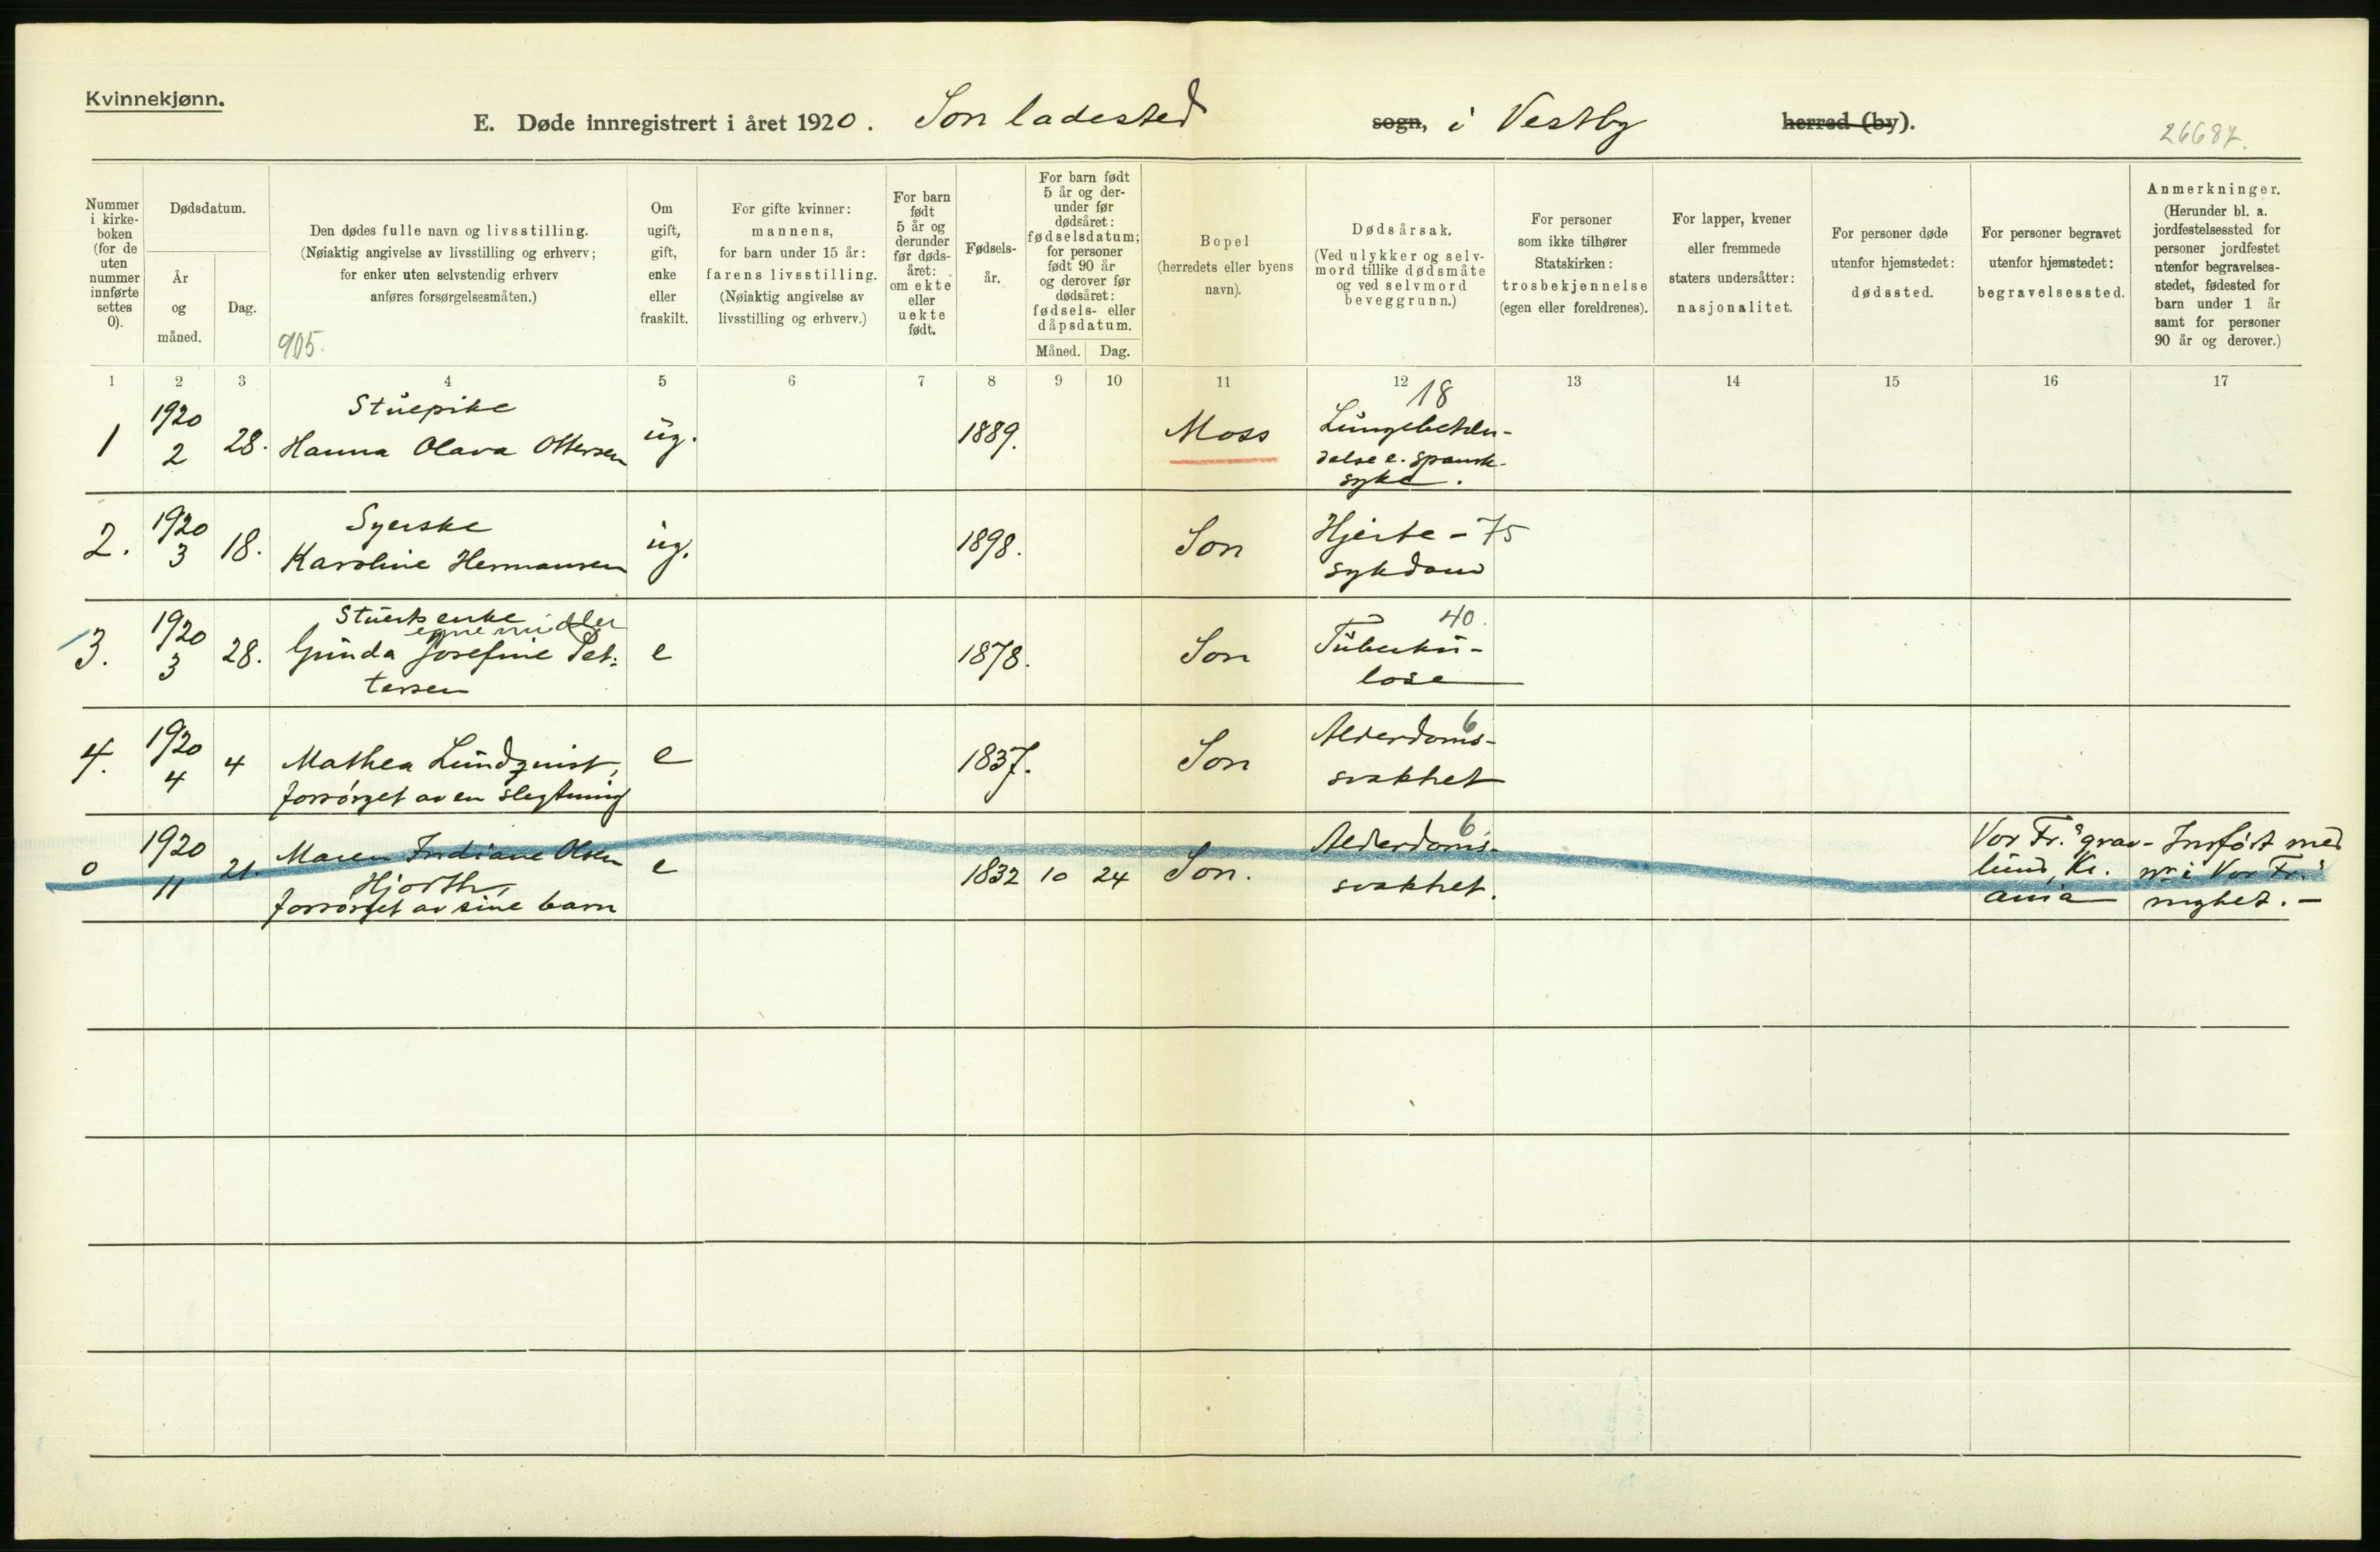 Kvinnekjønn.
E. Døde innregistrert i året 1920. Son ladested sogn, i Vestby herred (by).
26687.
Nummer
i kirke-
boken
(for de
uten
nummer
innførte
settes
0).
Dødsdatum.
År
og
måned.
Dag.
Den dødes fulle navn og livsstilling.
(Nøiaktig angivelse av livsstilling og erhverv;
for enker uten selvstendig erhverv
anføres forsørgelsesmåten.)
905.
Om
ugift,
gift,
enke
eller
fraskilt.
For gifte kvinner:
mannens,
for barn under 15 år:
farens livsstilling.
(Nøiaktig angivelse av
livsstilling og erhverv.)
For barn
født
5 år og
derunder
før døds-
året:
om ekte
eller
uekte
født.
Fødsels-
år.
For barn født
5 år og der-
under før
dødsåret:
fødselsdatum;
for personer
født 90 år
og derover før
dødsåret:
fødsels- eller
dåpsdatum.
Måned. Dag.
Bopel
(herredets eller byens
navn).
Dødsårsak.
(Ved ulykker og selv-
mord tillike dødsmåte
og ved selvmord
beveggrunn.)
For personer
som ikke tilhører
Statskirken:
trosbekjennelse
(egen eller foreldrenes).
For lapper, kvener
eller fremmede
staters undersåtter:
nasjonalitet.
For personer døde
utenfor hjemstedet:
dødssted.
For personer begravet
utenfor hjemstedet:
begravelsessted.
Anmerkninger.
(Herunder bl. a.
jordfestelsessted for
personer jordfestet
utenfor begravelses-
stedet, fødested for
barn under 1 år
samt for personer
90 år og derover.)
1 2 3 4 5 6 7 8 9 10 11 12 13 14 15 16 17
1
1920
2
28.
Stuepike
Hanna Olava Ottersen
ug.
1889.
Moss
18
Lungebeten-
delse e. spansk-
syke.
2.
1920
3
18.
Syerske
Karoline Hermansen
ug.
1898.
Son
Hjerte - 75
sykdom
3.
1920
3
28.
enke
egne midler
Gunda Josefine Pet-
tersen
e
1878.
Son
40.
Tuberku-
lose
4.
1920
4
4
Mathea Lundquist,
forsørget av en slegtning
e
1837.
Son
6
Alderdoms-
svakhet
0
1920
11
21.
Maren Indiane Olsen
Hjorth,
forsørget av sine barn
e
1832 10 24
Son.
6.
Alderdoms-
svakhet.
Vor Fr.s grav-
lund, Kr.
ania
Innført med
nr i Vor Fr.s
mghet. -